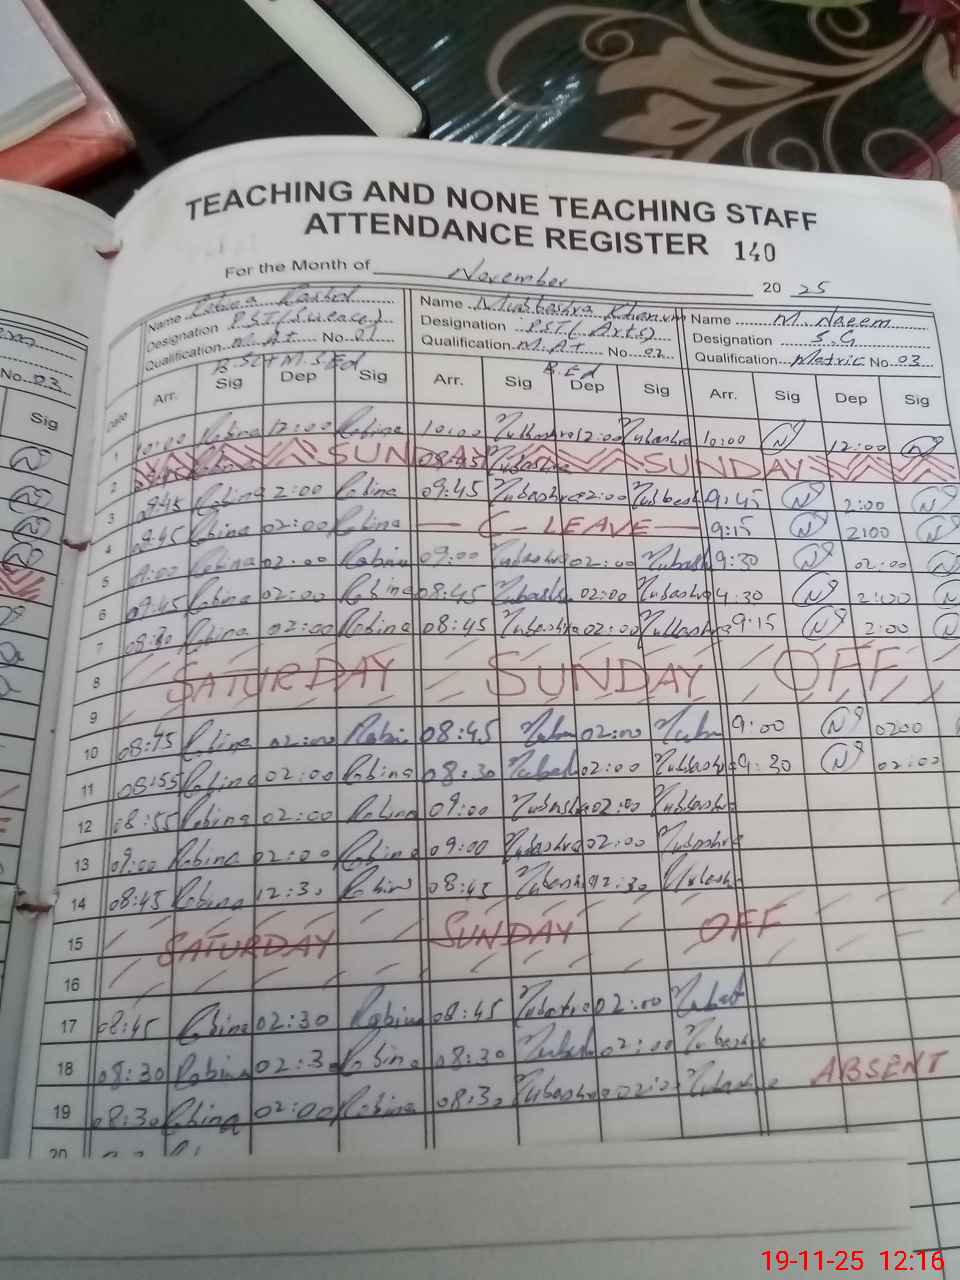 TEACHING AND NONE TEACHING STAFF
ATTENDANCE REGISTER 140
For the Month of November 20 25
Name Name Mubbashra Khanum Name M. Naeem
Designation PST(Science) Designation PST(Arts) Designation S.G
Qualification M.A+ No 01 Qualification M.A+ No 02 Qualification Matric No 03
B.Sc+M.S.Ed B.Ed
No 03
Date Arr. Sig Dep Sig Arr. Sig Dep Sig Arr. Sig Dep Sig
Sig
1 10:00 Robina 12:00 Robina 10:00 Mubbashra 12:00 Mubashra 10:00 N 12:00 N
2 SUNDAY 08:45 Mubashra SUNDAY
3 09:45 Robina 2:00 Robina 09:45 Mubashra 02:00 Mubbash 9:45 N 2:00 N
4 09:45 Robina 02:00 Robina C - LEAVE 9:15 N 2:00 N
5 9:00 Robina 02:00 Robina 09:00 Mubashra 02:00 Mubash 9:30 N 02:00 N
6 09:45 Robina 02:00 Robina 08:45 Mubash 02:00 Mubashra 9:30 N 2:00 N
7 08:30 Robina 02:00 Robina 08:45 Mubashra 02:00 Mubbashra 9:15 N 2:00 N
8 SATURDAY SUNDAY OFF
9
10 08:45 Robina 02:00 Robin 08:45 Mub 02:00 Mub 9:00 N 0200
11 08:55 Robina 02:00 Robina 08:30 Mubash 02:00 Mubbashra 9:30 N 02:00
12 08:55 Robina 02:00 Robina 09:00 Mubashra 02:00 Mubbashr
13 09:00 Robina 02:00 Robina 09:00 Mubashra 02:00 Mubashra
14 08:45 Robina 12:30 Robina 08:45 Mubashra 12:30 Mubash
15 SATURDAY SUNDAY OFF
16
17 08:45 Robina 02:30 Robina 08:45 Mubashra 02:00 Mubash
18 08:30 Robina 02:30 Robina 08:30 Mubash 02:00 Mubashra ABSENT
19 08:30 Robina 02:00 Robina 08:30 Mubashra 02:00 Mubashra
20
19-11-25 12:16